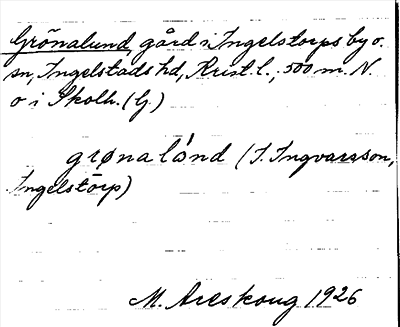 Grönalund, gård i Ingelstorps by o.
sn, Ingelstads hd, Krist. l.; 500 m. N.
o i Skolh. (G.)
grøna lónd (J. Ingvarsson,
Ingelstorp)
M. Areskoug 1926